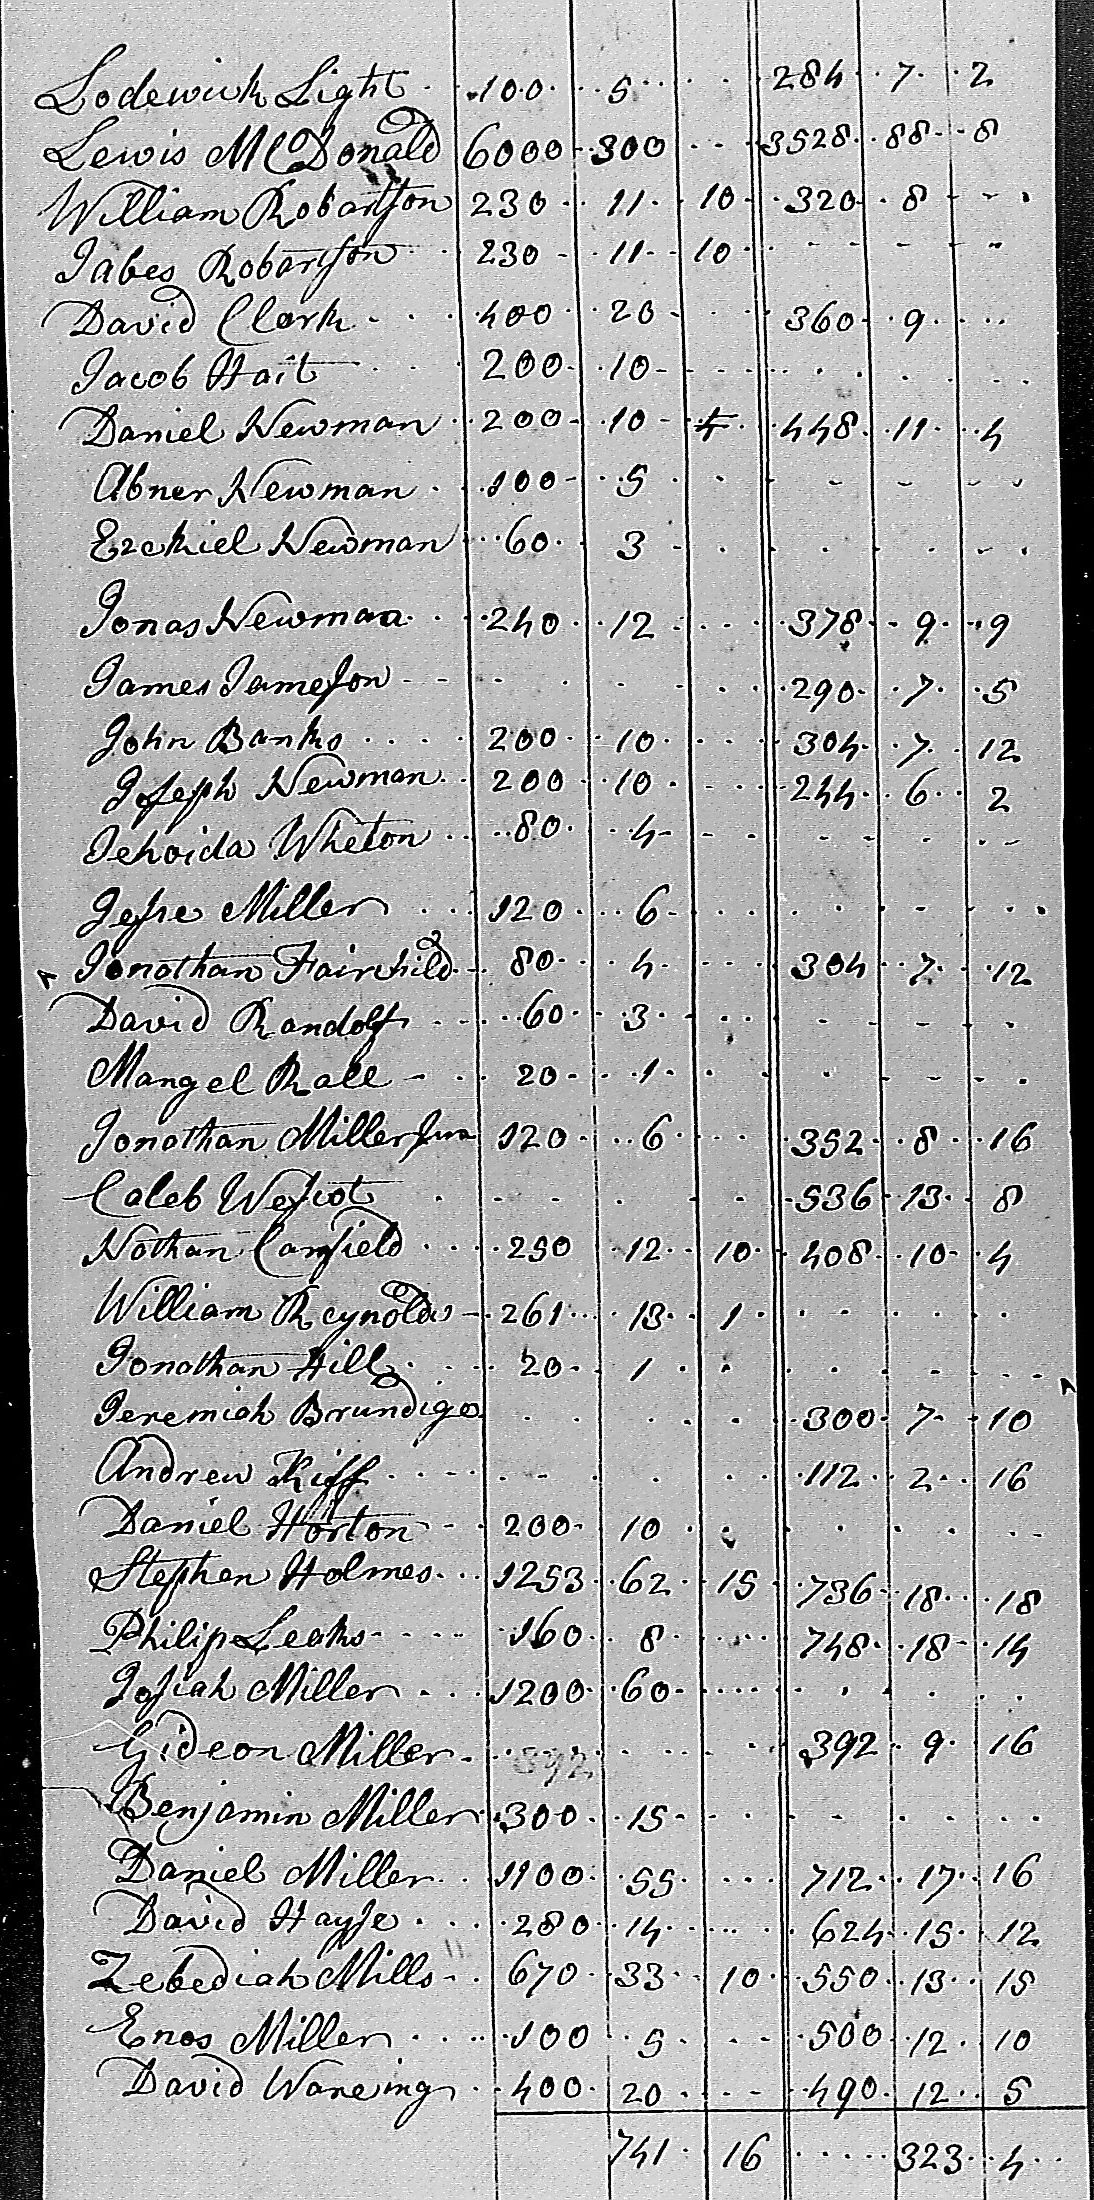 Lodewick Light 100 5 284 7 2
Lewis McDonald 6000 300 3528 88 8
William Robartson 230 11 10 320 8
Jabes Robartson 230 11 10
David Clark 400 20 360 9
Jacob Hait 200 10
Daniel Newman 200 10 448 11 4
Abner Newman 100 5
Ezekiel Newman 60 3
Jonas Newman 240 12 378 9 9
James Jameson 290 7 5
John Banks 200 10 304 7 12
Joseph Newman 200 10 244 6 2
Jehoida Wheton 80 4
Jesse Miller 120 6
Jonathan Fairchild 80 4 304 7 12
David Randolf 60 3
Mangel Rall 20 1
Jonathan Miller Jun 120 6 352 8 16
Caleb 536 13 8
Nathan Canfield 250 12 10 408 10 4
William Reynolds 261 13 1
Jonathan Hill 20 1
Jeremiah Brundige 300 7 10
Andrew Kiff 112 2 16
Daniel Horton 200 10
Stephen Holmes 1253 62 15 736 18 18
Philip Leaks 160 8 748 18 14
Josiah Miller 1200 60
Gideon Miller 392 392 9 16
Benjamin Miller 300 15
Daniel Miller 1100 55 712 17 16
David Hayse 280 14 624 15 12
Zebediah Mills 670 33 10 550 13 15
Enos Miller 100 5 500 12 10
David Wareing 400 20 490 12 5
741 16 323 4